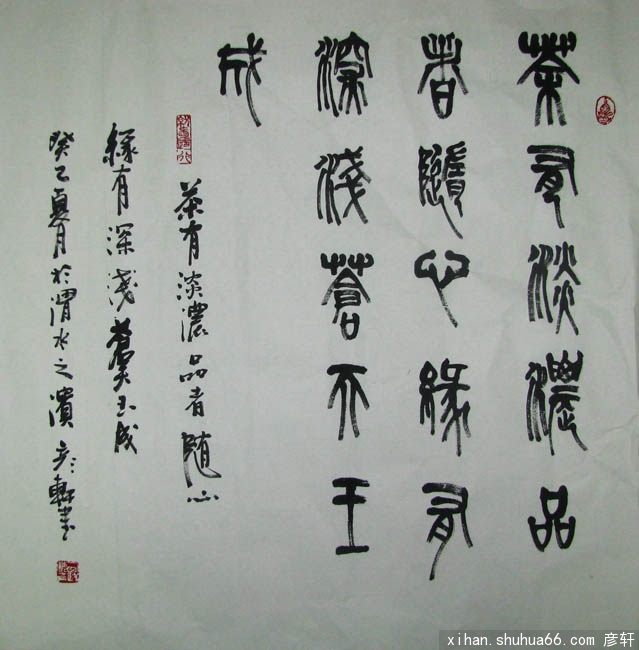 茶有淡濃品
者隨心緣有
深淺蒼天玉
成
茶有淡濃品者随心
緣有深淺蒼天玉成
癸巳夏月於渭水之濱 彦軒書
xihan.shuhua66.com 彦轩